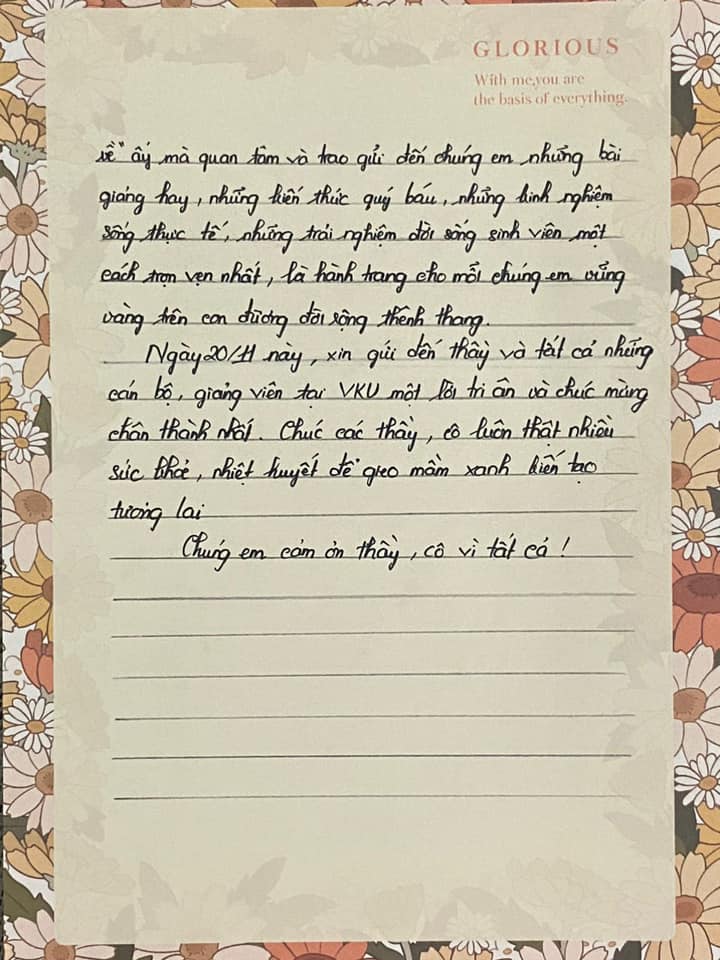 GLORIOUS
With me,you are
the basis of everything.
về" ấy mà quan tâm và trao gửi đến chúng em những bài
giảng hay, những kiến thức quý báu, những kinh nghiệm
sống thực tế, những trải nghiệm đời sống sinh viên một
cách trọn vẹn nhất, là hành trang cho mỗi chúng em vững
vàng trên con đường đời rộng thênh thang.
Ngày 20/11 này, xin gửi đến thầy và tất cả những
cán bộ, giảng viên tại VKU một lời tri ân và chúc mừng
chân thành nhất. Chúc các thầy, cô luôn thật nhiều
sức khoẻ, nhiệt huyết để gieo mầm xanh kiến tạo
tương lai
Chúng em cảm ơn thầy, cô vì tất cả!